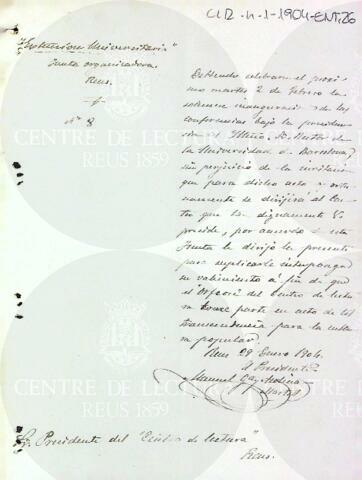 CLR-4-1-1904-ENT,26
"Extension Universitaria"
Junta organizadora.
Reus.
Nº 8
Debiendo celebrarse el proxi-
mo martes 2 de Febrero la
solemne inauguracion de las
conferencias bajo la presiden-
cia del Iltmo. Sr. Rector de
la Universidad de Barcelona,
sin perjuicio de la invitacion
que para dicho acto
se dirijirá al Cen-
tro que tan dignamente V.
preside, por acuerdo de esta
Junta le dirijo la presente
para suplicarle interponga
su valimiento á fin de que
el Orfeó del Centro de Lectu-
ra tome parte en acto de tal
trascendencia para la cultu-
ra popular.
Reus 29 Enero 1904.
El Presidente
Manuel
Martí
Sr. Presidente del "Centro de Lectura"
Reus.
CENTRE DE LECTURA
REUS 1859
CENTRE DE LECTURA
REUS 1859